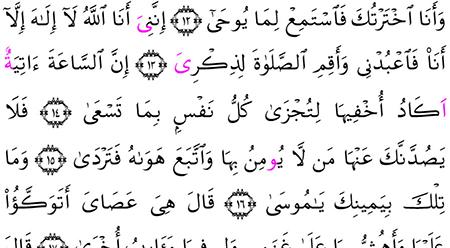 وَأَنَا ٱخْتَرْتُكَ فَٱسْتَمِعْ لِمَا يُوحَىٰٓ ۝١٢ إِنَّنِىَ أَنَا ٱللَّهُ لَآ إِلَٰهَ إِلَّآ
أَنَا۠ فَٱعْبُدْنِى وَأَقِمِ ٱلصَّلَوٰةَ لِذِكْرِىَ ۝١٣ إِنَّ ٱلسَّاعَةَ ءَاتِيَةٌ
اَكَادُ أُخْفِيهَا لِتُجْزَىٰ كُلُّ نَفْسٍۭ بِمَا تَسْعَىٰ ۝١٤ فَلَا
يَصُدَّنَّكَ عَنْهَا مَن لَّا يُومِنُ بِهَا وَٱتَّبَعَ هَوَىٰهُ فَتَرْدَىٰ ۝١٥ وَمَا
تِلْكَ بِيَمِينِكَ يَٰمُوسَىٰ ۝١٦ قَالَ هِىَ عَصَاىَ أَتَوَكَّؤُا۟